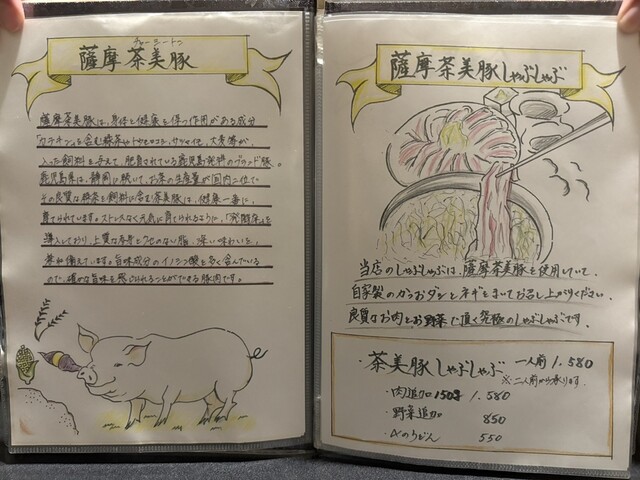 チャーミートン
薩摩 茶美豚
薩摩茶美豚は、身体と健康を保つ作用がある成分
「カテキン」を含む緑茶やトウモロコシ、サツマイモ、大麦等が
入った飼料を与えて肥育されている鹿児島発祥のブランド豚。
鹿児島県は、静岡に続いて、お茶の生産量が国内二位で
その良質な緑茶を飼料に含む茶美豚は、健康一番に
育てられています。ストレスなく元気に育てられるように、「発酵床」を
導入しており、上質な赤身とクセのない脂、深い味わいを
兼ね備えています。旨味成分のイノシン酸を多く含んでいる
ので、確かな旨味を感じられることができる豚肉です。
薩摩茶美豚しゃぶしゃぶ
当店のしゃぶしゃぶは、薩摩茶美豚を使用していて、
自家製のかつおダシとネギをまいてお召し上がりください。
良質なお肉とお野菜で頂く究極のしゃぶしゃぶです。
・茶美豚しゃぶしゃぶ 一人前 1.580
※二人前から承ります。
・肉追加 150g 1.580
・野菜追加 850
・〆のうどん 550